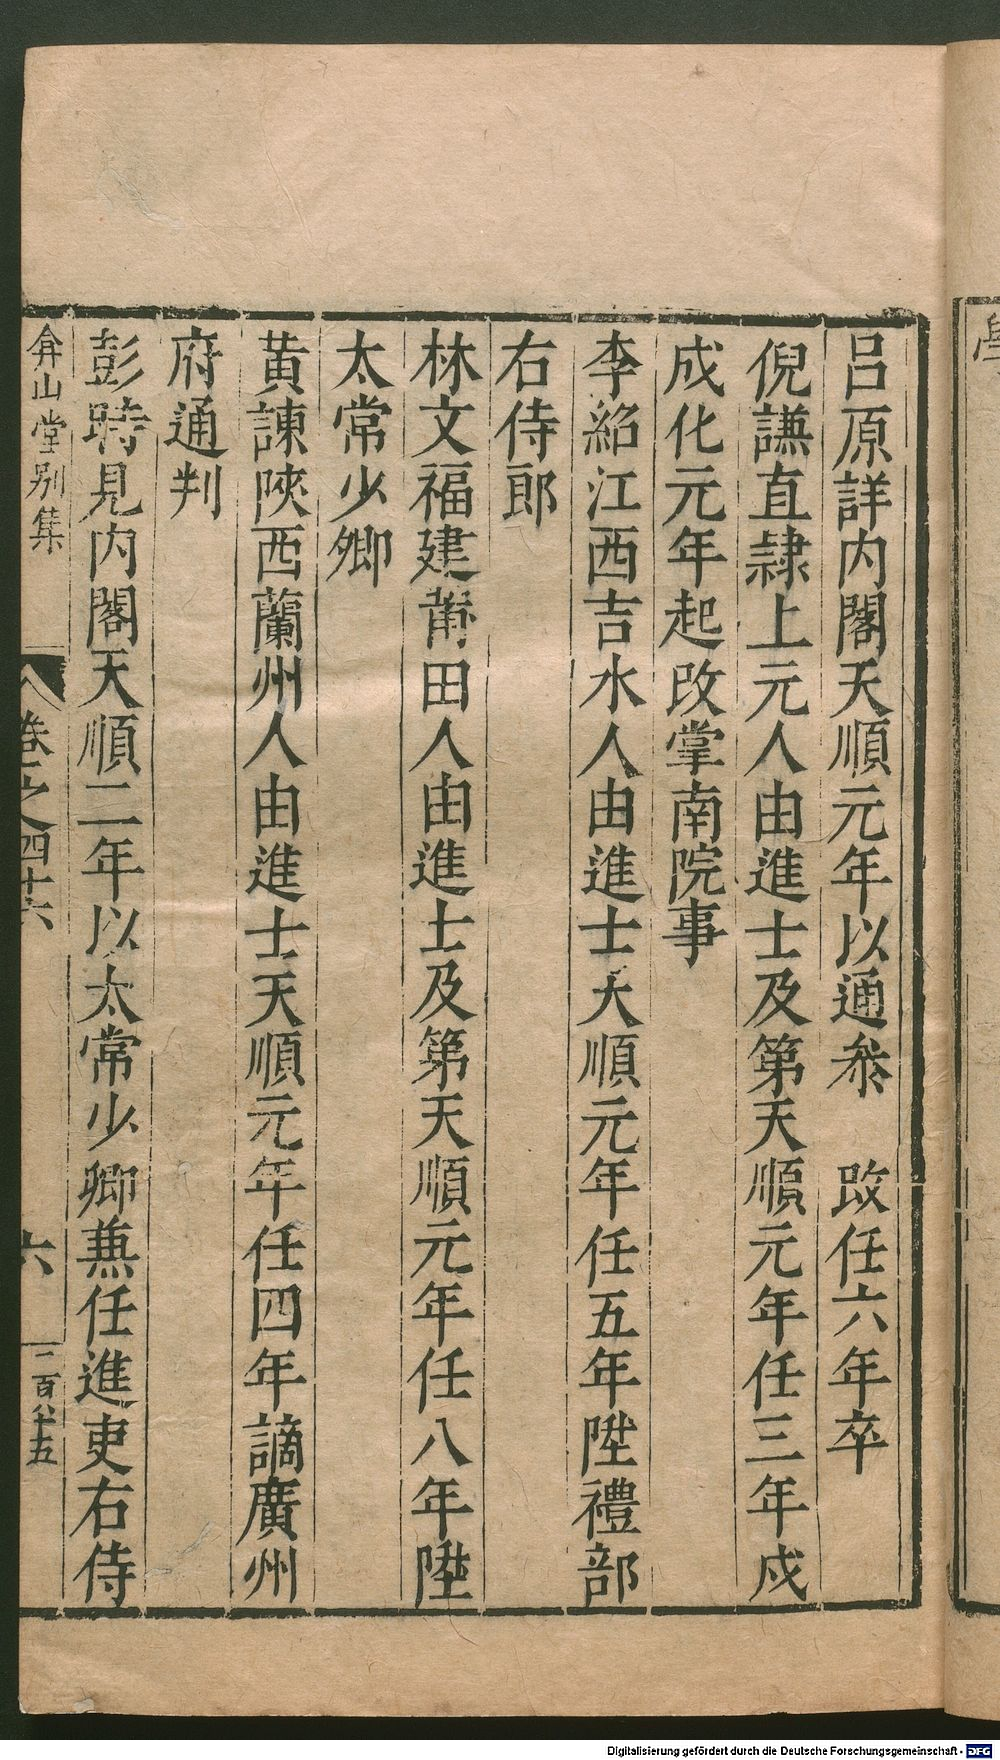 呂原詳內閣天順元年以通叅　改任六年卒
倪謙直隷上元人由進士及第天順元年任三年戍
成化元年起改掌南院事
李紹江西吉水人由進士天順元年任五年陞禮部
右侍郎
林文福建莆田人由進士及第天順元年任八年陞
太常少卿
黃諫陝西蘭州人由進士天順元年任四年謫廣州
府通判
彭時見內閣天順二年以太常少卿兼任進吏右侍
弇山堂別集　卷之四十六　六　二百八十五
Digitalisierung gefördert durch die Deutsche Forschungsgemeinschaft - DFG